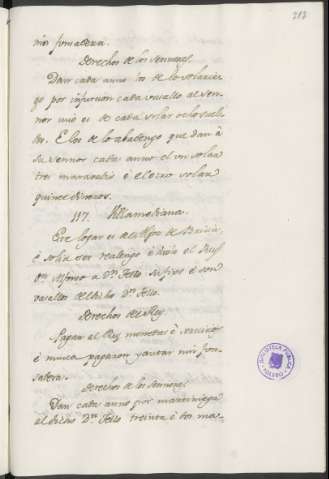 213
nin fonsadera.
Derechos de los sennores
Dan cada anno los de lo solarie-
go por infurcion cada vasallo al sen-
nor
E los de lo abadengo que dan à
su sennor cada anno el un solar
tres maravedis è el otro solar
quince dineros.
117. Villamediana.
Este logar es del Obpo de
è solia ser realengo è diolo el Rey
Dn. Alfonso a Dn. Tello su fijo è son
vasallos del dicho Dn. Tello.
Derechos del Rey
Pagan al Rey monedas è servicios
è nunca pagaron yantar nin fon-
sadera.
Derechos de los sennores
Dan cada anno por martiniega
al dicho Dn. Tello treinta è dos ma-
BIBLIOTECA PUBLICA